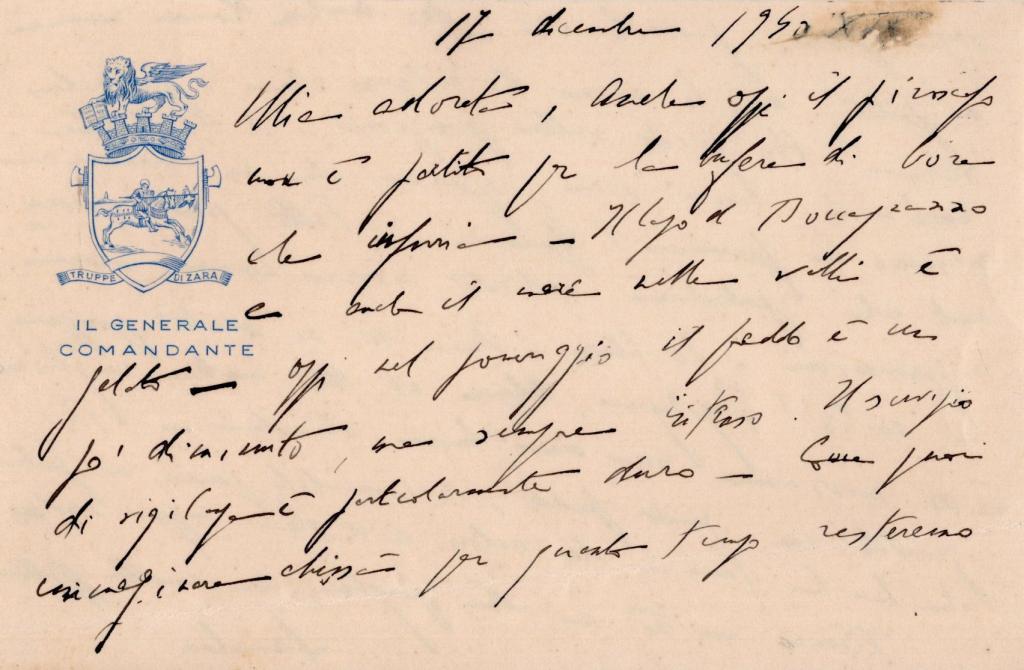 17 dicembre 1940 XIX
Mia adorata, Anche oggi il piroscafo
non è partito per la bufera di bora
che infuria – Il lago di Boccagnazzo
e anche il mare nelle valli è
TRUPPE DI ZARA
IL GENERALE
COMANDANTE
gelato – oggi nel pomeriggio il freddo è un
po' diminuito, ma sempre intenso. Il servizio
di vigilanza è particolarmente duro – Come puoi
immaginare chissà per quanto tempo resteremo